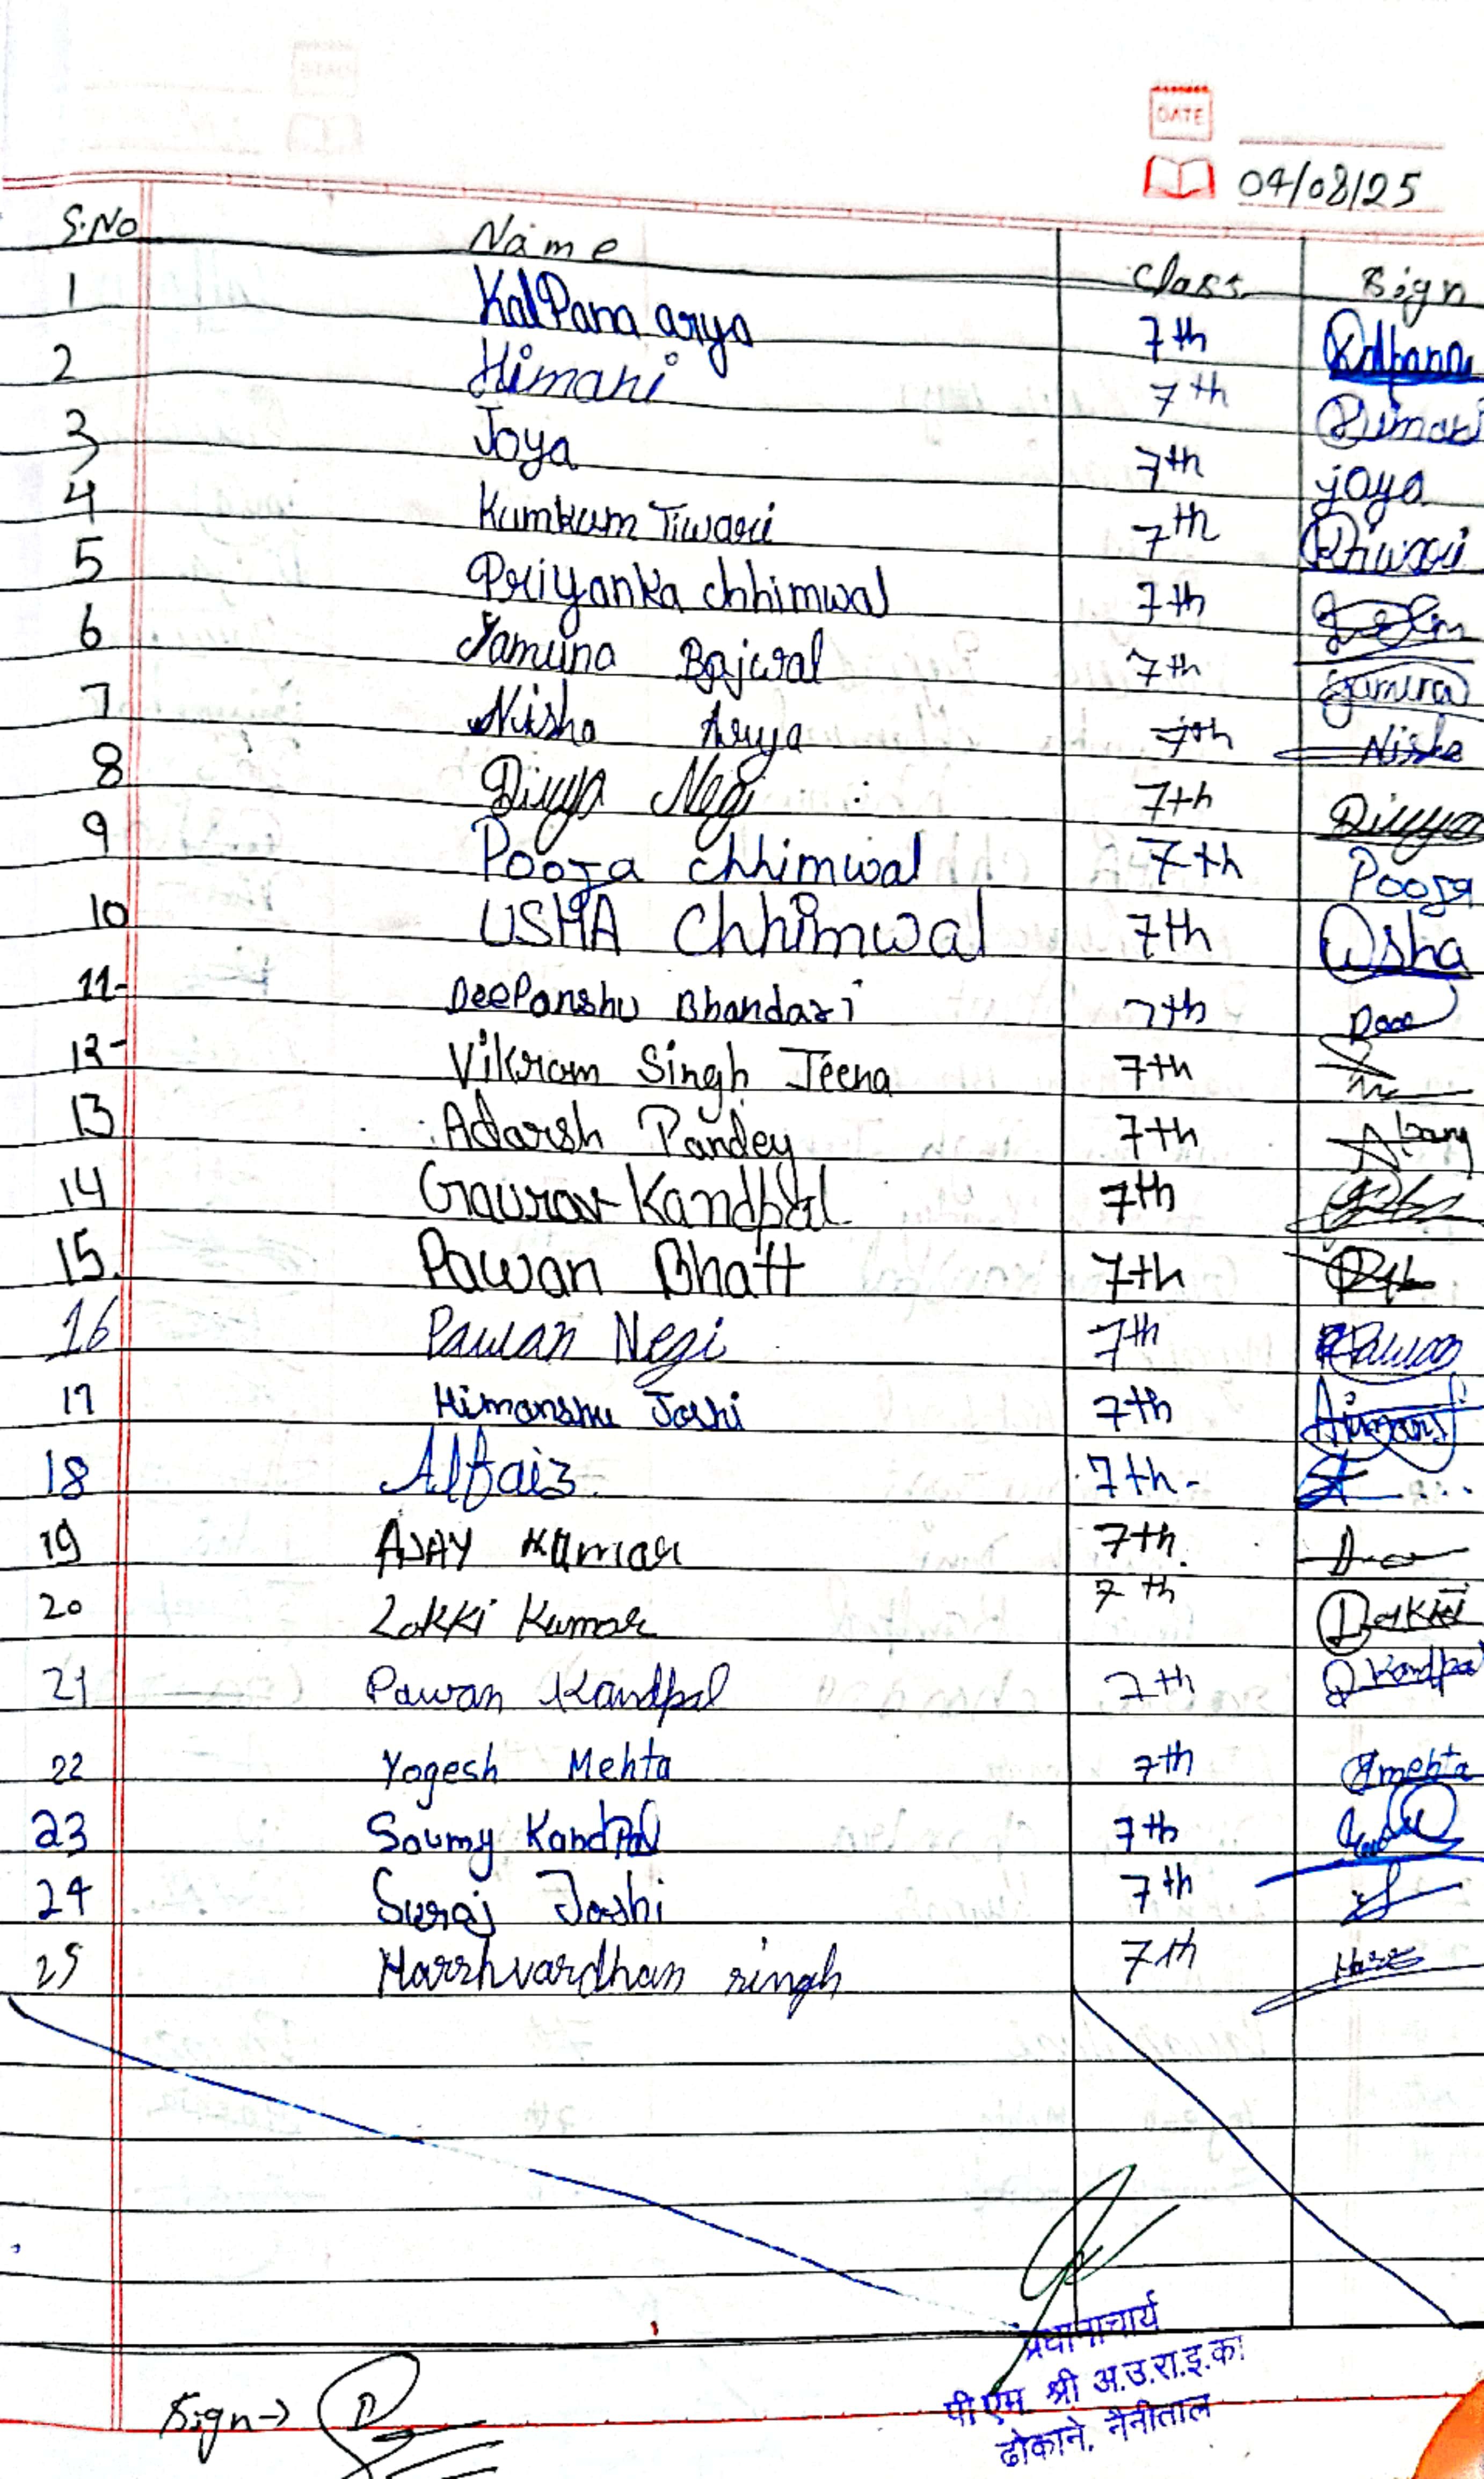 DATE
04/08/25
S.No Name Class Sign
1 KalPana arya 7th Kalpana
2 Himani 7th Himani
3 Joya 7th joya
4 Kumkum Tiwari 7th
5 Priyanka chhimwal 7th
6 Jamuna Bajwal 7th Jamuna
7 Nisha Arya 7th Nisha
8 Divya Negi 7th Divya
9 Pooja chhimwal 7th Pooja
10 USHA Chhimwal 7th Usha
11- DeePanshu Bhandari 7th
12- Vikram Singh Jeena 7th
13 Adarsh Pandey 7th
14 Gaurav Kandpal 7th
15. Pawan Bhatt 7th
16 Pawan Negi 7th
17 Himanshu Joshi 7th
18 Alfaiz 7th-
19 AJAY Kumar 7th.
20 Lakki Kumar 7th Lakki
21 Pawan Kandpal 7th Kandpal
22 Yogesh Mehta 7th mehta
23 Soumy Kandpal 7th
24 Suraj Joshi 7th
25 Harshvardhan singh 7th
प्रधानाचार्य
पी एम श्री अ.उ.रा.इ.का
ढोकाने, नैनीताल
Sign→